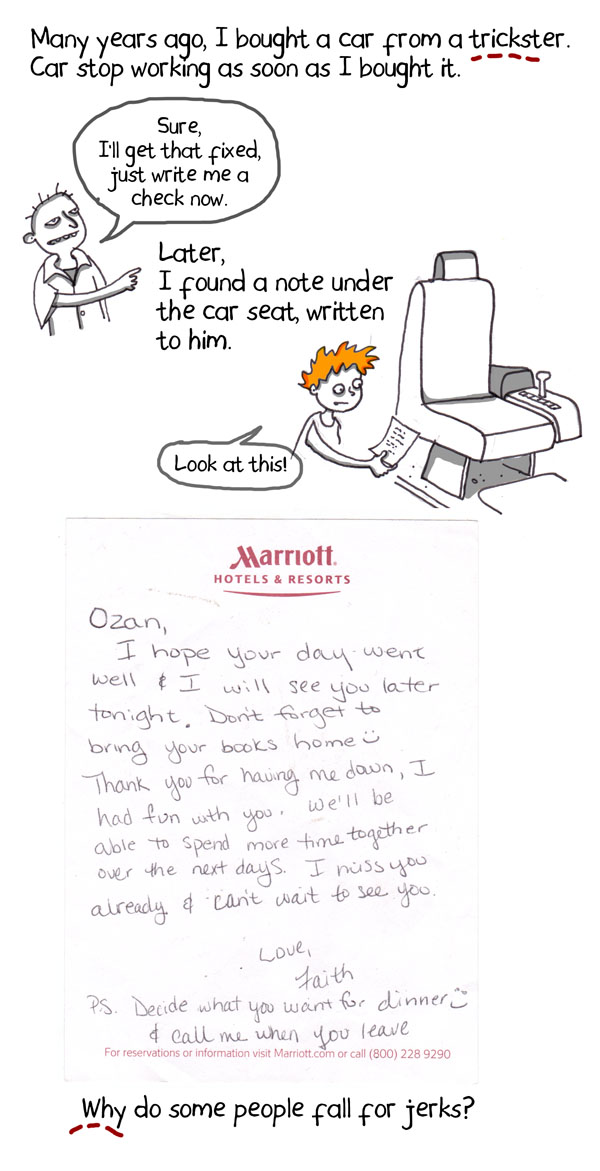 Many years ago, I bought a car from a trickster.
Car stop working as soon as I bought it.
Sure,
I'll get that fixed,
just write me a
check now.
Later,
I found a note under
the car seat, written
to him.
Look at this!
Marriott
HOTELS & RESORTS
Ozan,
I hope your day went
well & I will see you later
tonight. Don't forget to
bring your books home
Thank you for having me down, I
had fun with you. We'll be
able to spend more time together
over the next days. I miss you
already & can't wait to see you.
Love,
Faith
P.S. Decide what you want for dinner
& call me when you leave
For reservations or information visit Marriott.com or call (800) 228 9290
Why do some people fall for jerks?